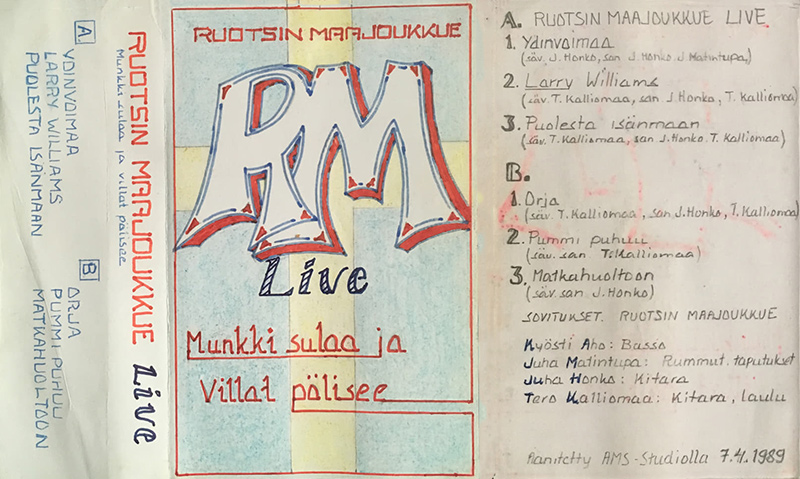 A.
YDINVOIMAA
LARRY WILLIAMS
PUOLESTA ISÄNMAAN
B
ORJA
PUMMI PUHUU
MATKAHUOLTOON
RUOTSIN MAAJOUKKUE Live
Munkki sulaa ja villat pölisee
RUOTSIN MAAJOUKKUE
RM
Live
Munkki sulaa ja
Villat pölisee
A. RUOTSIN MAAJOUKKUE LIVE
1. Ydinvoimaa
(säv. J. Honko, san J. Honko J. Matintupa,)
2. Larry Williams
(säv. T. Kalliomaa, san J. Honko, T. Kalliomaa)
3. Puolesta isänmaan
(säv. T. Kalliomaa, san J. Honko. T. Kalliomaa)
B.
1. Orja
(säv. T. Kalliomaa, san J. Honko, T. Kalliomaa)
2. Pummi puhuu
(säv. san T. Kalliomaa)
3. Matkahuoltoon
(säv. san J. Honko)
SOVITUKSET. RUOTSIN MAAJOUKKUE
Kyösti Aho: Basso
Juha Matintupa: Rummut, taputukset
Juha Honko: Kitara
Tero Kalliomaa: Kitara, laulu
Äänitetty AMS-Studiolla 7.4.1989